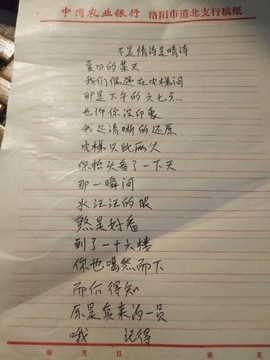 中国农业银行 洛阳市道北支行稿纸
不是情诗是晴诗
夏日的某天
我们偶遇在电梯间
那是下午的六七点…
也许你没印象
我还清晰的还原
电梯只此两人
你抬头看了一下天
那一瞬间
水汪汪的眼
煞是好看
到了一十六楼
你也噶然而下
而后得知
原是卖来的一员
哦 记得
年 月 日 第 页